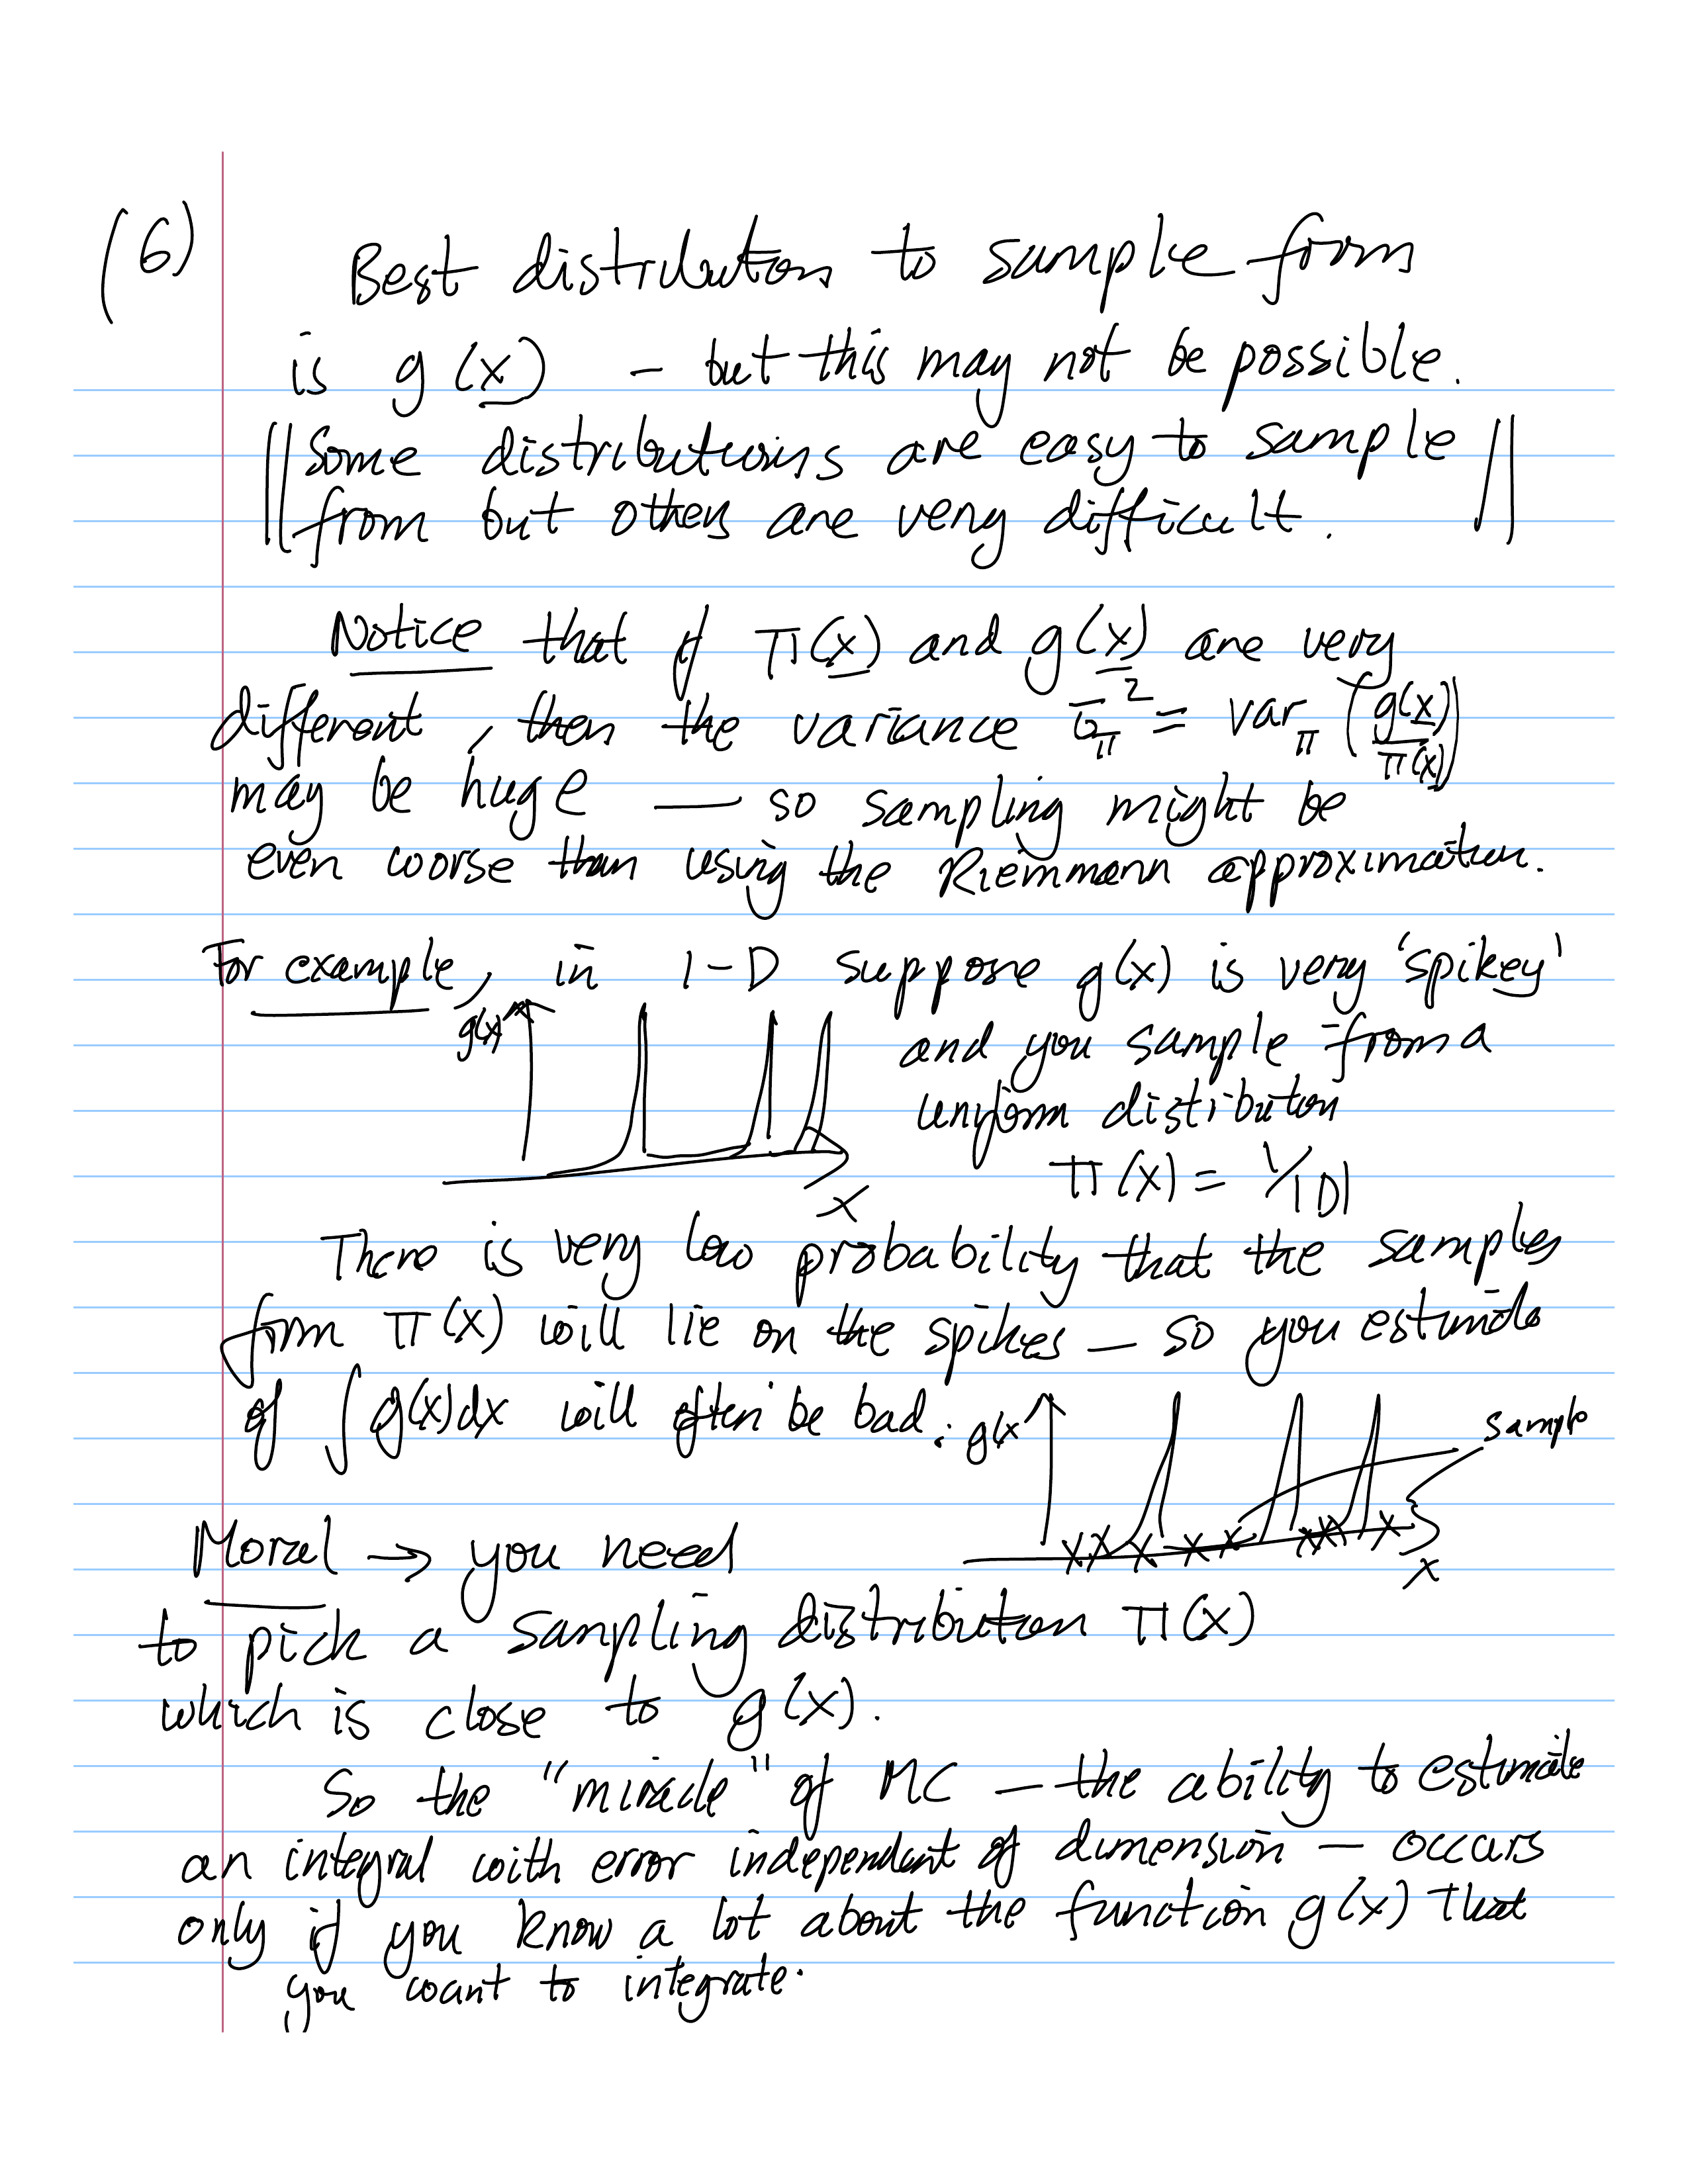 (6) Best distribution to sample from
is g(x) – but this may not be possible.
|| Some distributions are easy to sample ||
|| from but others are very difficult. ||
Notice that if π(x) and g(x) are very
different, then the variance σ_π² = var_π (g(x)/π(x))
may be huge — so sampling might be
even worse than using the Riemmann approximation.
For example, in 1-D suppose g(x) is very 'spikey'
g(x)
and you sample from a
uniform distribution
x
π(x) = 1/|D|
There is very low probability that the samples
from π(x) will lie on the spikes – so you estimate
of ∫ g(x)dx will often be bad.
g(x
sample
x
Moral → you need
to pick a sampling distribution π(x)
which is close to g(x).
So the "miracle" of MC – the ability to estimate
an integral with error independent of dimension – occurs
only if you know a lot about the function g(x) that
you want to integrate.